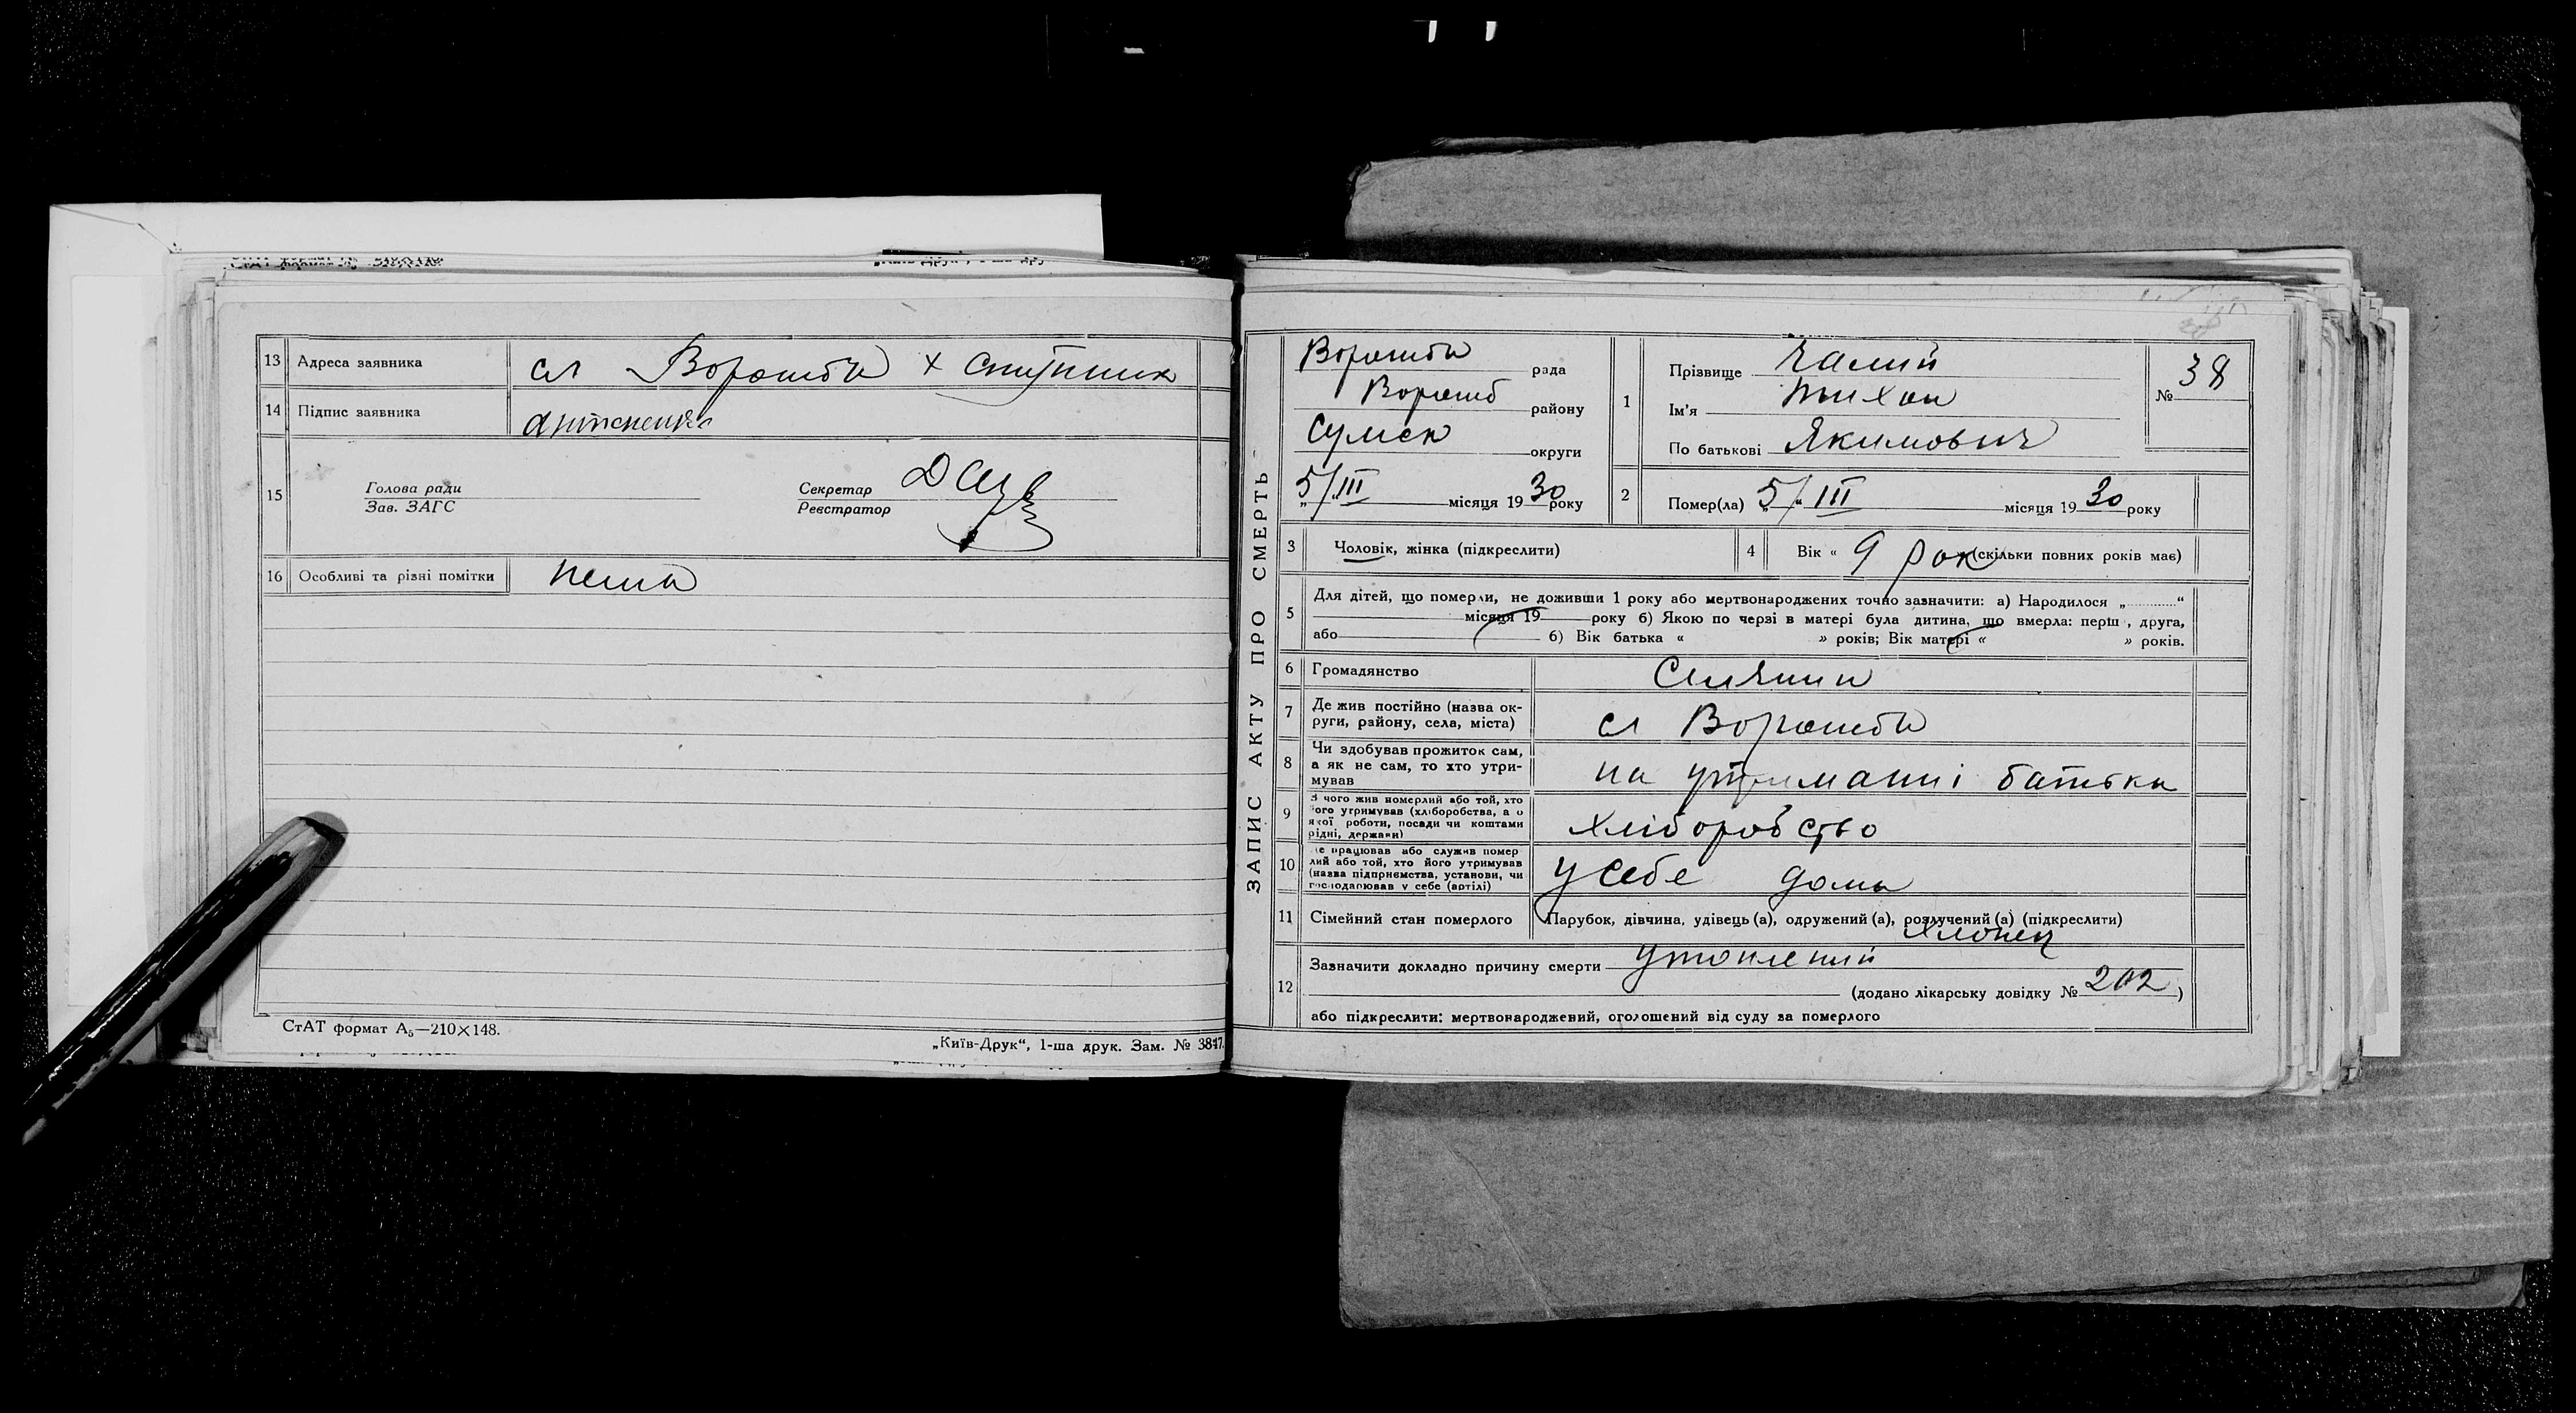 13 Адреса заявника сл Ворожба х Спутник
14 Підпис заявника
15 Голова ради
Зав. ЗАГС
Секретар
Реєстратор
16 Особливі та різні помітки нема
СтАТ формат А₅—210×148.
„Київ-Друк“, 1-ша друк. Зам. № 3847.
ЗАПИС АКТУ ПРО СМЕРТЬ
Ворожба рада
Ворожб району
Сумск округи
5/III місяця 1930 року
1 Прізвище Чалий
Ім'я Тихон
По батькові Якимович
№ 38
2 Помер(ла) 5/III місяця 1930 року
3 Чоловік, жінка (підкреслити)
4 Вік « 9 рок (скільки повних років має)
5 Для дітей, що померли, не доживши 1 року або мертвонароджених точно зазначити: а) Народилося „ “
місяця 19 року б) Якою по черзі в матері була дитина, що вмерла: перш , друга,
або б) Вік батька « » років; Вік матері « » років.
6 Громадянство Селянин
7 Де жив постійно (назва ок-
руги, району, села, міста) сл Ворожба
8 Чи здобував прожиток сам,
а як не сам, то хто утри-
мував на утриманні батька
9 З чого жив померлий або той, хто
його утримував (хліборобства, а о
якої роботи, посади чи коштами
рідні, держави) Хліборобство
10 Де працював або служив помер
лий або той, хто його утримував
(назва підприємства, установи, чи
господарював у себе (артілі) У себе дома
11 Сімейний стан померлого Парубок, дівчина, удівець (а), одружений (а), розлучений (а) (підкреслити)
хлопец
12 Зазначити докладно причину смерти утоплений
(додано лікарську довідку № 202)
або підкреслити: мертвонароджений, оголошений від суду за померлого